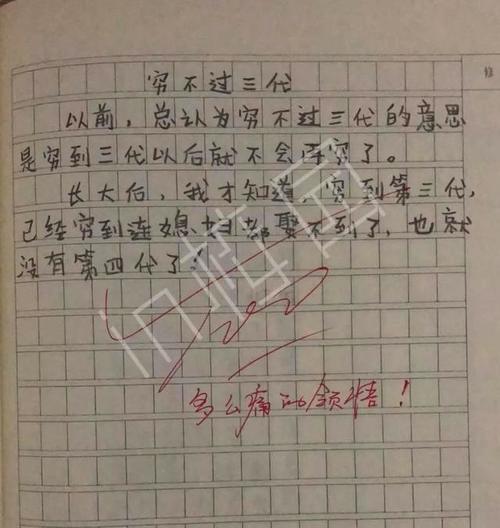 穷不过三代
以前，总认为穷不过三代的意思
是穷到三代以后就不会再穷了。
长大后，我才知道，穷到第三代，
已经穷到连媳妇都娶不到了，也就
没有第四代了！
多么痛的领悟！